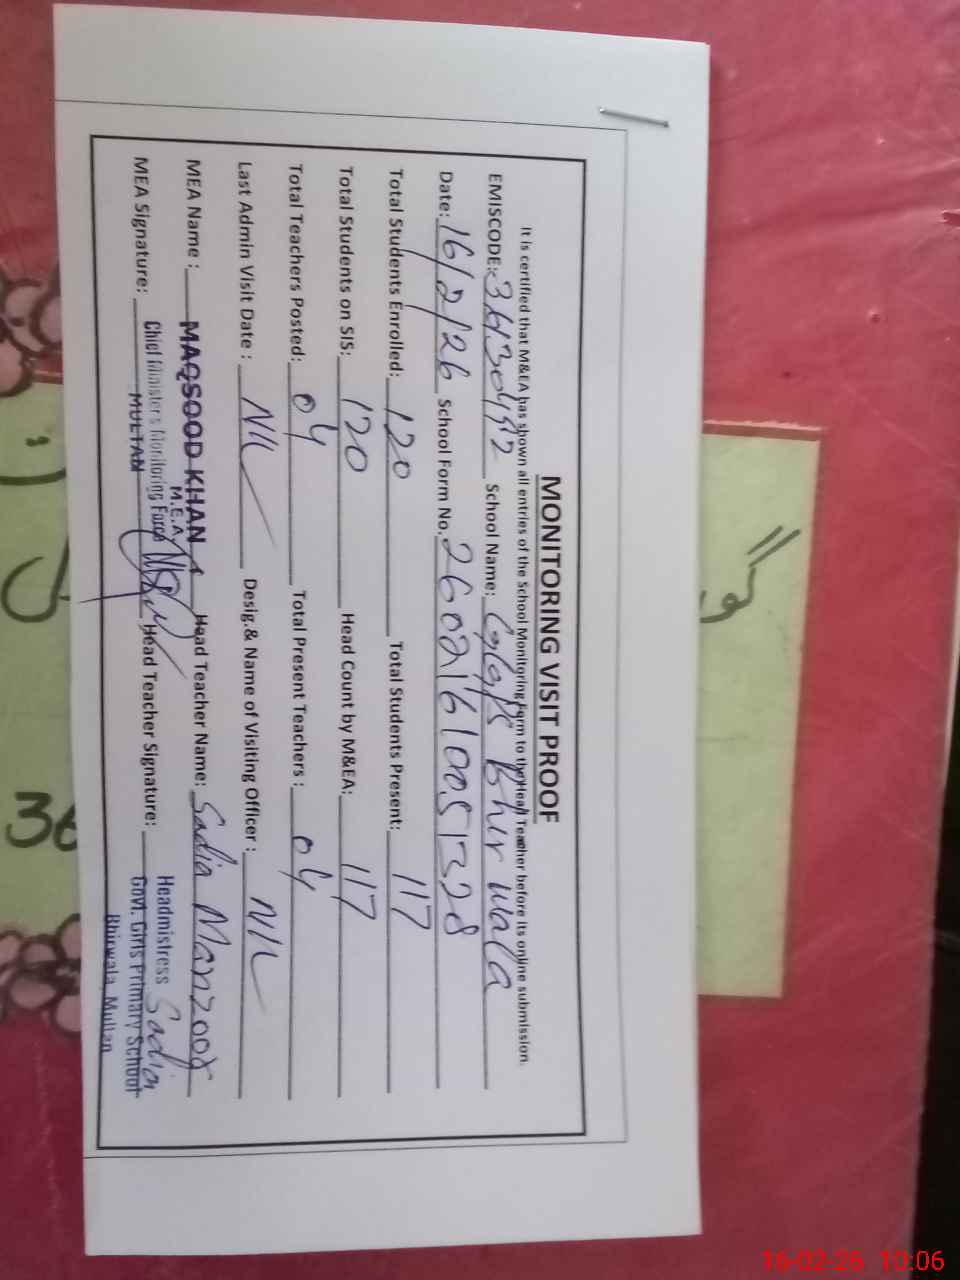 MONITORING VISIT PROOF
It is certified that M&EA has shown all entries of the School Monitoring Form to the Head Teacher before its online submission.
EMISCODE: School Name: GGPS Bhir wala
Date: 16/2/26 School Form No. 26021610051328
Total Students Enrolled: 120 Total Students Present: 117
Total Students on SIS: 120 Head Count by M&EA: 117
Total Teachers Posted: 04 Total Present Teachers : 04
Last Admin Visit Date : NIL Desig.& Name of Visiting Officer : NIL
MEA Name : MAQSOOD KHAN Head Teacher Name: Sadia Manzoor
M.E.A
MEA Signature: Chief Minister's Monitoring Force Head Teacher Signature: Headmistress Sadia
MULTAN Govt. Girls Primary School
Bhirwala, Multan
36
16-02-26 10:06